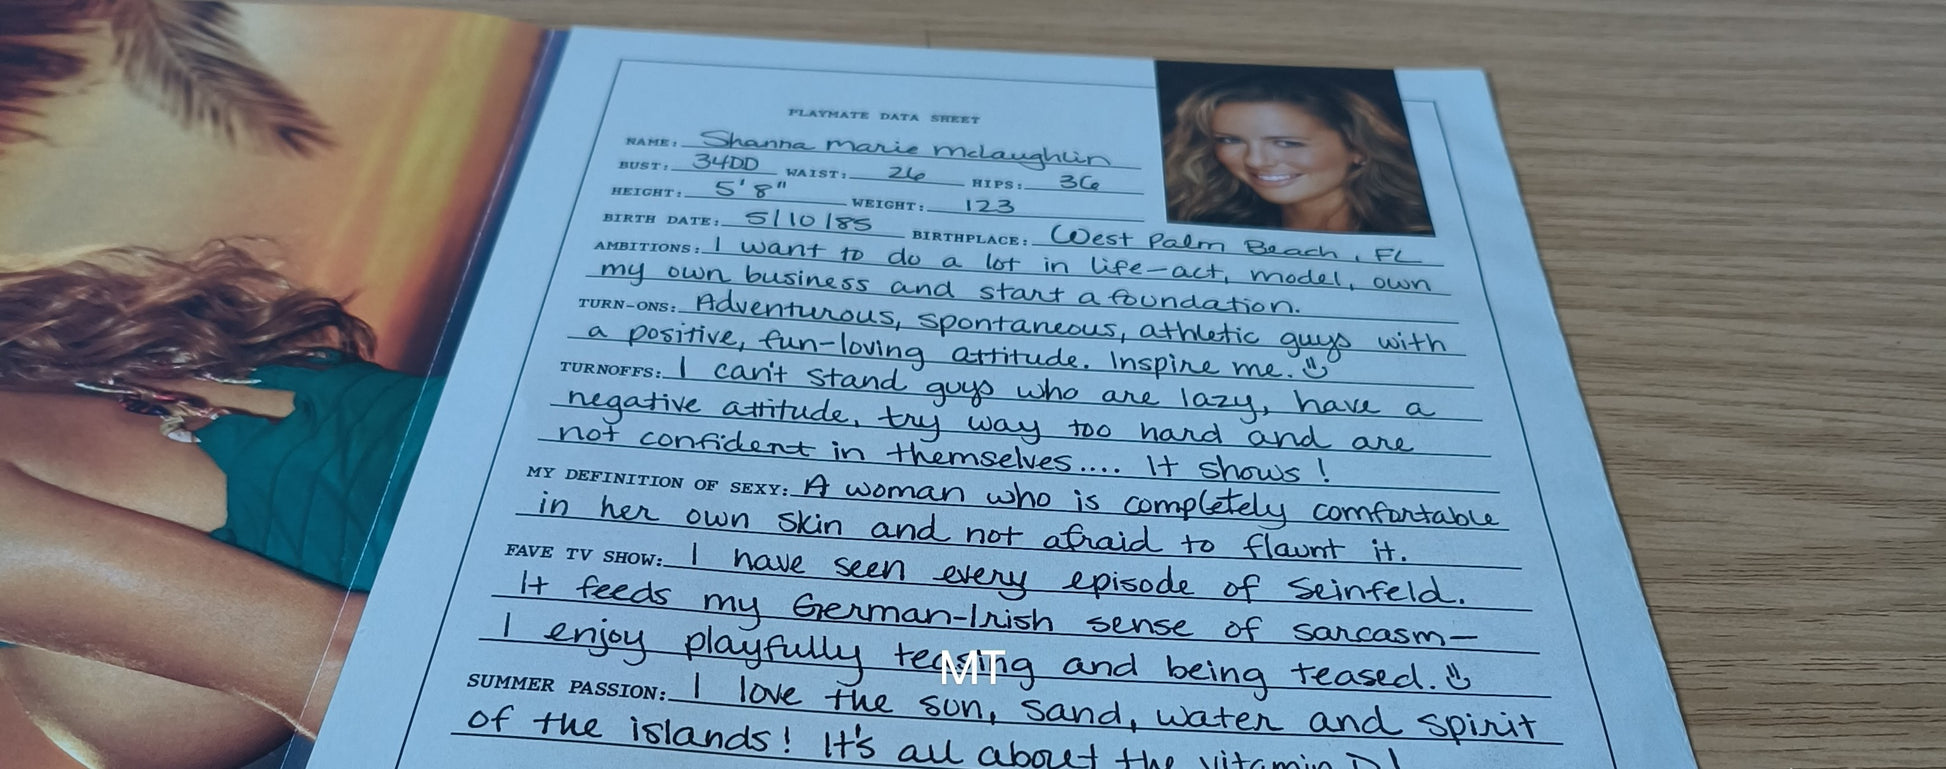 PLAYMATE DATA SHEET
NAME: Shanna Marie McLaughlin
BUST: 34DD WAIST: 26 HIPS: 36
HEIGHT: 5'8" WEIGHT: 123
BIRTH DATE: 5/10/85 BIRTHPLACE: West Palm Beach, FL
AMBITIONS: I want to do a lot in life-act, model, own
my own business and start a foundation.
TURN-ONS: Adventurous, spontaneous, athletic guys with
a positive, fun-loving attitude. Inspire me.
TURNOFFS: I can't stand guys who are lazy, have a
negative attitude, try way too hard and are
not confident in themselves.... It shows!
MY DEFINITION OF SEXY: A woman who is completely comfortable
in her own skin and not afraid to flaunt it.
FAVE TV SHOW: I have seen every episode of Seinfeld.
It feeds my German-Irish sense of sarcasm—
I enjoy playfully teasing and being teased.
MT
SUMMER PASSION: I love the sun, sand, water and spirit
of the islands! It's all about the vitamin D!